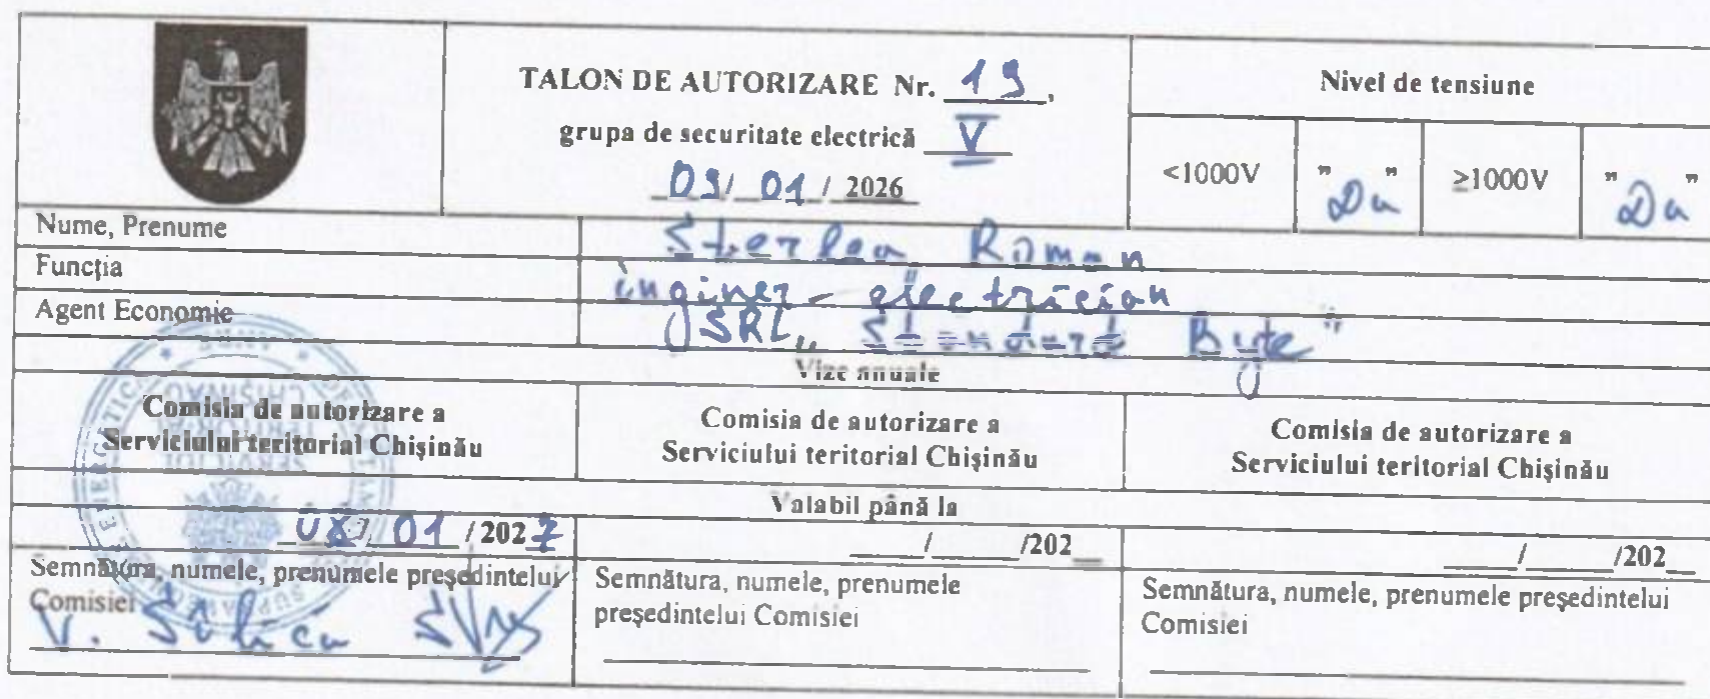 TALON DE AUTORIZARE Nr. 19,
grupa de securitate electrică V
09/ 01 / 2026
Nivel de tensiune
<1000V "Da" ≥1000V "Da"
Nume, Prenume Sterlea Roman
Funcția inginer-electrician
Agent Economic SRL „Standard Byte"
Vize anuale
Comisia de autorizare a
Serviciului teritorial Chişinău
Comisia de autorizare a
Serviciului teritorial Chişinău
Comisia de autorizare a
Serviciului teritorial Chişinău
Valabil până la
/ 01 / 2027
____/______/202__
____/______/202__
Semnătura, numele, prenumele preşedintelui
Comisiei
V.
Semnătura, numele, prenumele
preşedintelui Comisiei
Semnătura, numele, prenumele preşedintelui
Comisiei
SERVICIUL
TERITORIAL
CHIŞINĂU